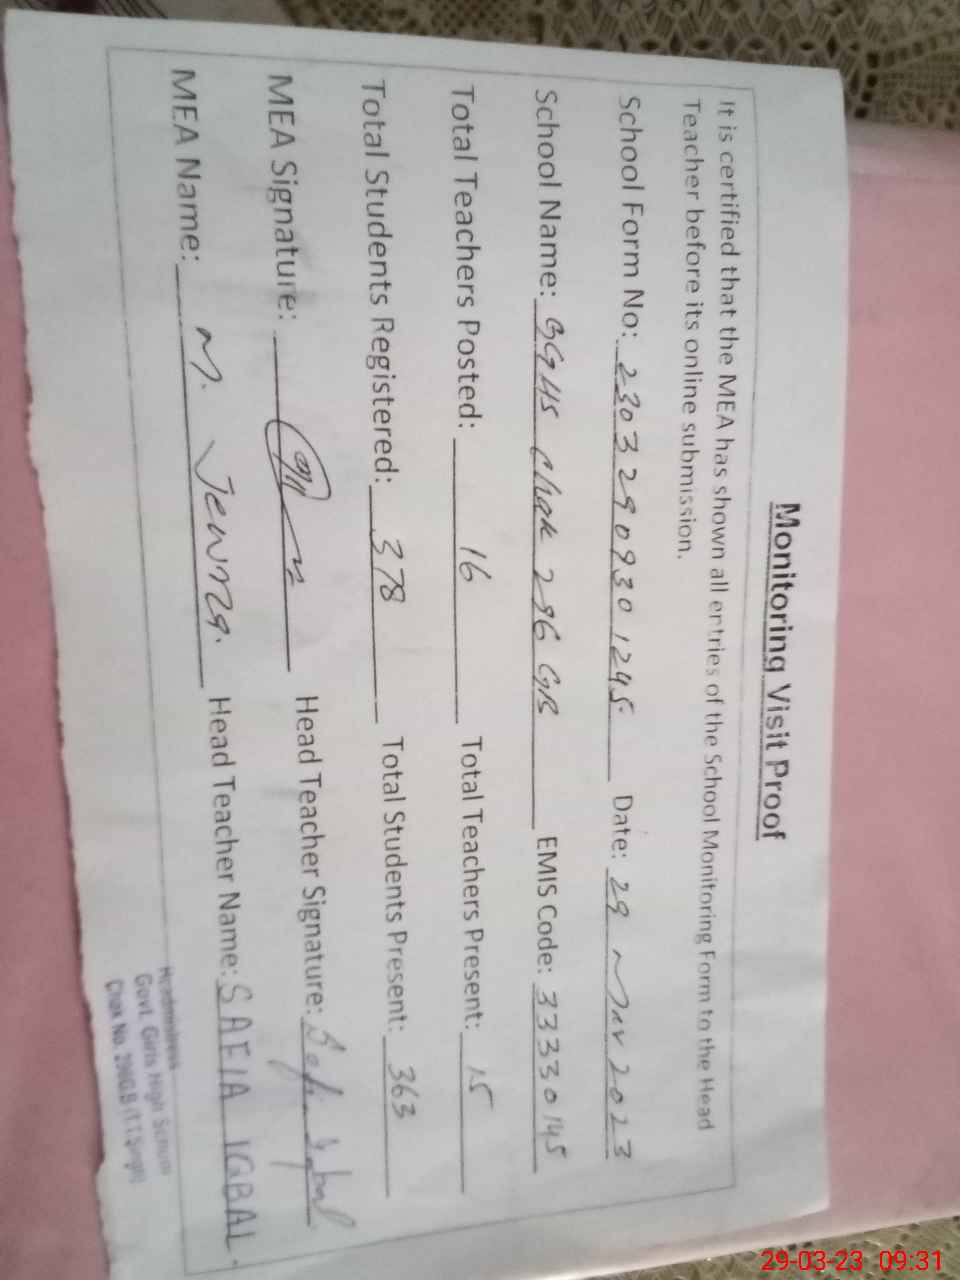 Monitoring Visit Proof
It is certified that the MEA has shown all entries of the School Monitoring Form to the Head
Teacher before its online submission.
School Form No: 23032909301245 Date: 29 Mar 2023
School Name: GGHS Chak 296 GB EMIS Code: 33330145
Total Teachers Posted: 16 Total Teachers Present: 15
Total Students Registered: 378 Total Students Present: 363
MEA Signature: Head Teacher Signature: Safia Iqbal
MEA Name: M. Head Teacher Name: SAFIA IQBAL
Headmistress
Govt. Girls High School
Chak No. 296GB (T.T.Singh)
29-03-23 09:31